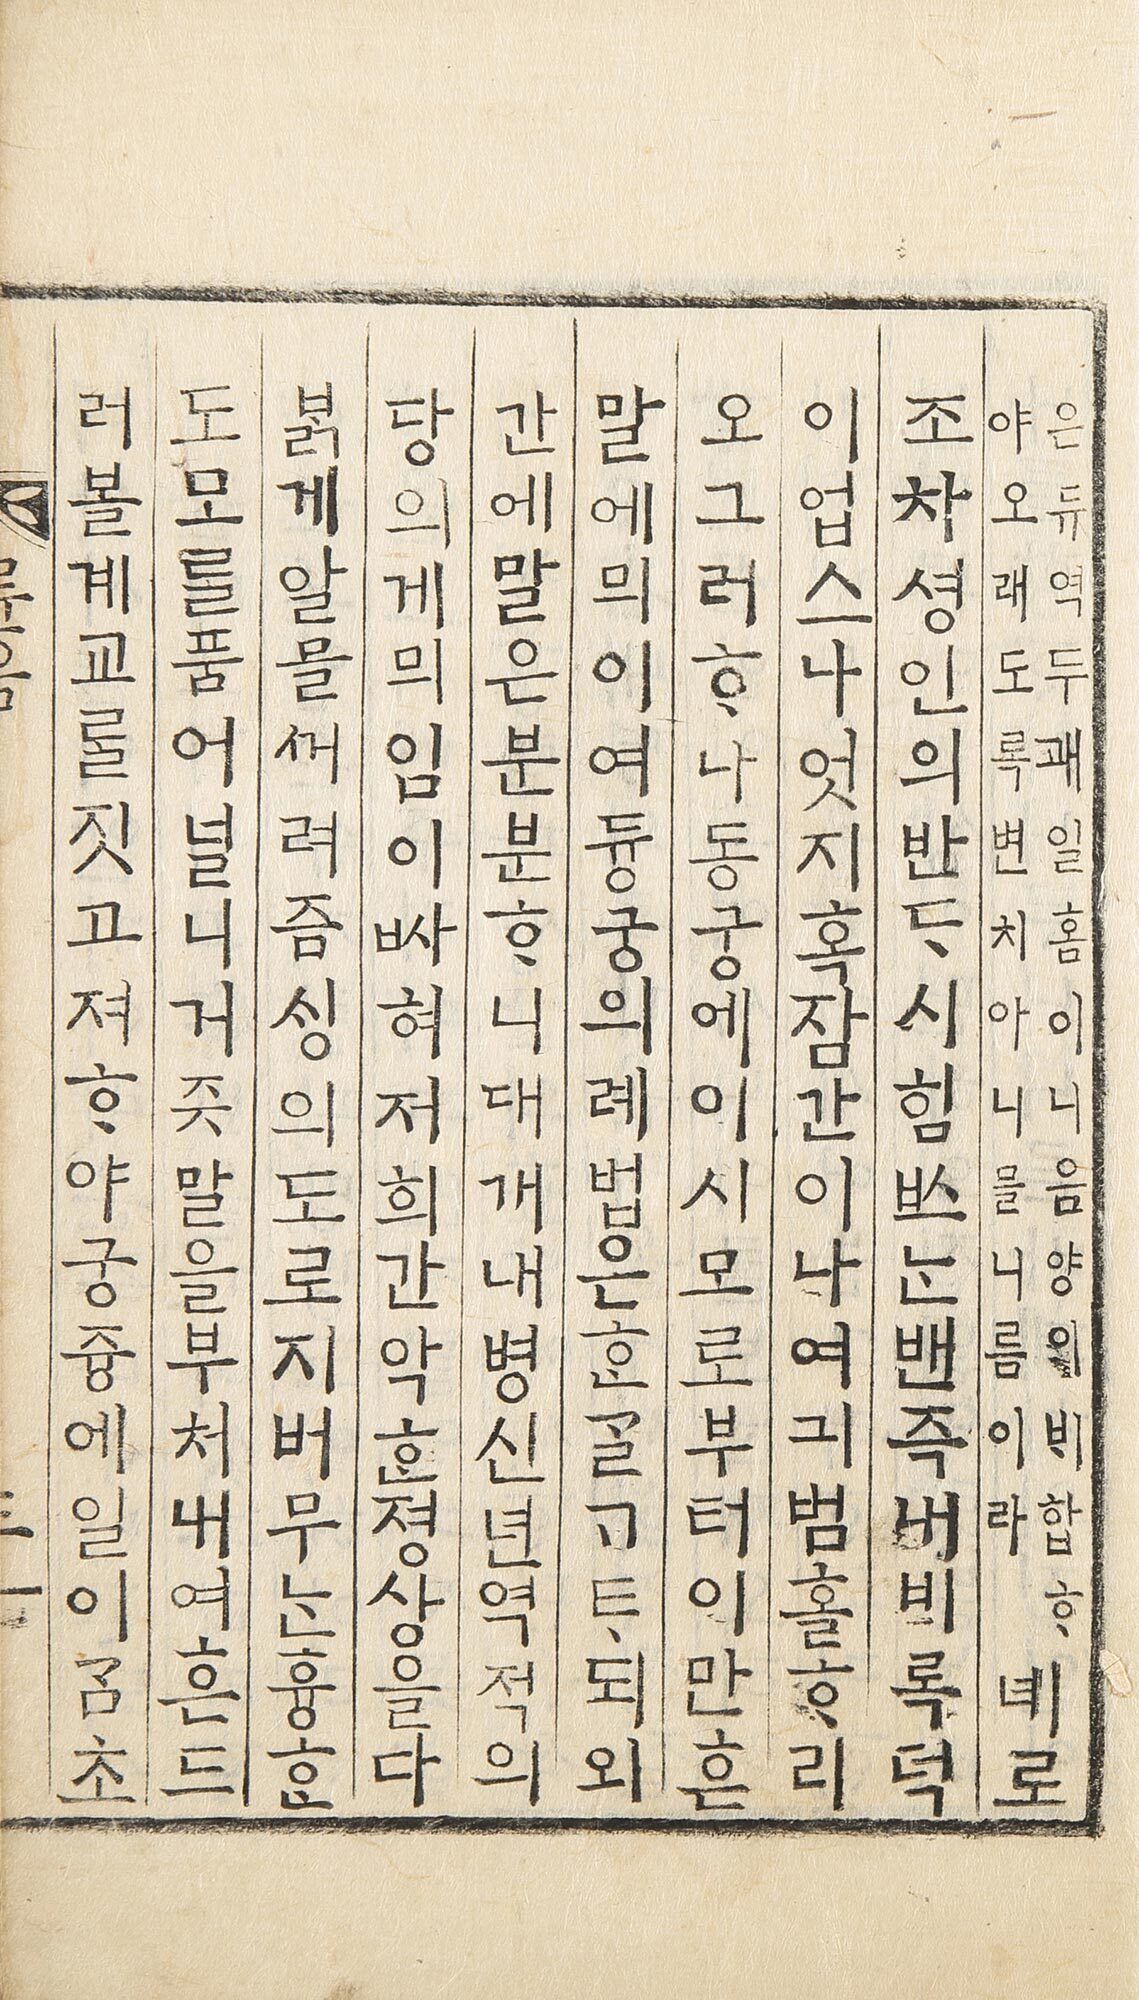 은듀역두괘일홈이니음양의ᄇᆡ합ᄒᆞ
야오래도록변치아니믈니름이라
녜로
조차셩인의반ᄃᆞ시힘ᄡᅳᄂᆞᆫ밴즉내비록덕
이업스나엇지혹잠간이나여긔범홀ᄒᆞ리
오그러ᄒᆞ나동궁에이시모로부터이만ᄒᆞᆫ
말에믜이여듕궁의례법은ᄒᆞᆫ설ᄀᆞᄐᆞ되외
간에말은분분ᄒᆞ니대개내병신년역적의
당의게믜임이ᄡᅡ혀저희간악ᄒᆞᆫ졍상을다
붉게알믈ᄭᅥ려즘싱의도로지버무ᄂᆞᆫ흉ᄒᆞᆫ
도모를품어널니거즛말을부쳐내여ᄒᆞᆫ드
러볼계교를짓고져ᄒᆞ야궁즁에일이점초